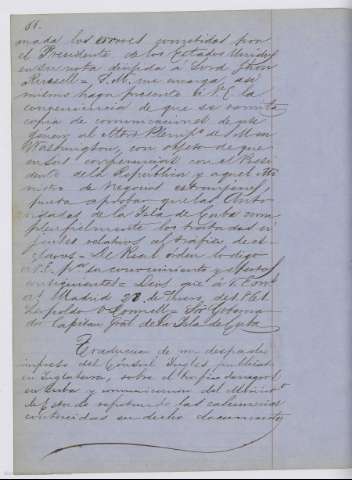 61.
nada los errores cometidos por
el Presidente de los Estados Unidos
en su nota dirigida á Lord John
Russell = S. M. me encarga asi
mismo haga presente á V. E. la
conveniencia de que se remita
copia de comunicaciones de este
género al Mtro Plenipº de S. M. en
Washington, con objeto de que
en sus conferencias con el Presi
dente de la República y aquel Mi
nistro de Negocios extrangeros,
pueda probar que las Auto
ridades de la Isla de Cuba cum
plen fielmente los tratados vi
jentes relativos al tráfico de es
clavos = De Real orden lo digo
á V. E. para su conocimiento y efectos
consiguientes = Dios gue á V. E. 
Madrid 27 de Enero de 1861
Leopoldo O'Donnell = Sor Goberna
dor Capitan Gral de la Isla de Cuba
Traduccion de un despacho
impreso del Consul Inglés publicado
en Inglaterra, sobre el tráfico de negros
en Cuba y comunicacion del Ministro
de Estado refutando las calumnias
contenidas en dicho documento